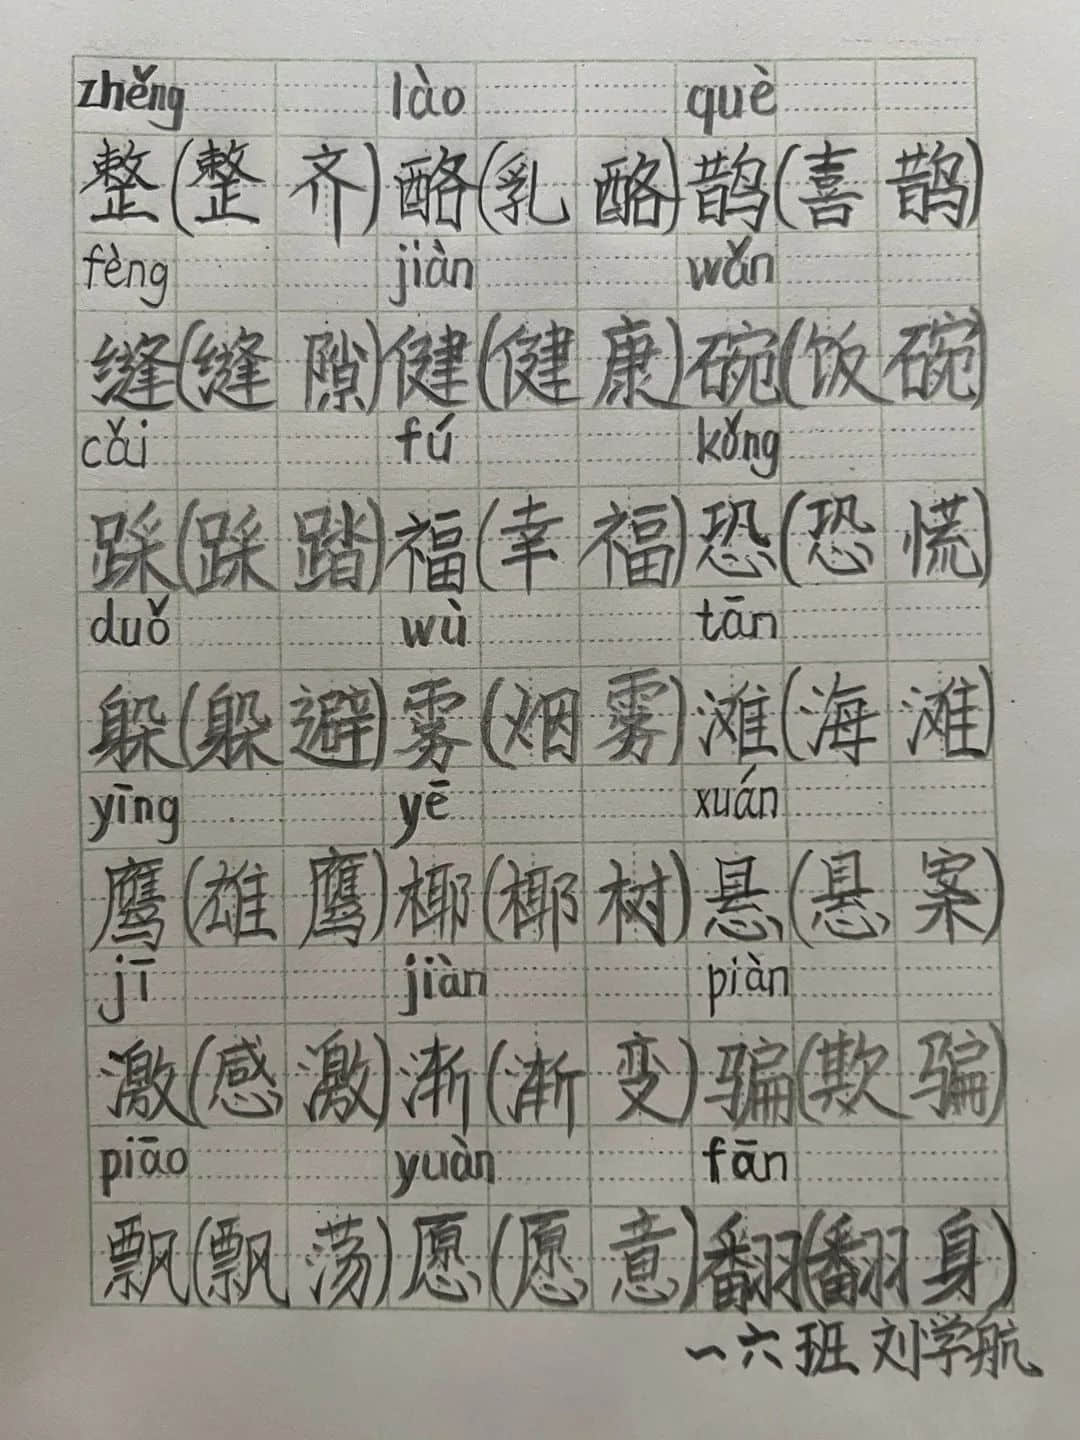 zhěng lào què
整(整齐)酪(乳酪)鹊(喜鹊)
fèng jiàn wǎn
缝(缝隙)健(健康)碗(饭碗)
cǎi fú kǒng
踩(踩踏)福(幸福)恐(恐慌)
duǒ wù tān
躲(躲避)雾(烟雾)滩(海滩)
yīng yē xuán
鹰(雄鹰)椰(椰树)悬(悬案)
jī jiàn piàn
激(感激)渐(渐变)骗(欺骗)
piāo yuàn fān
飘(飘荡)愿(愿意)翻(翻身)
一六班 刘学航